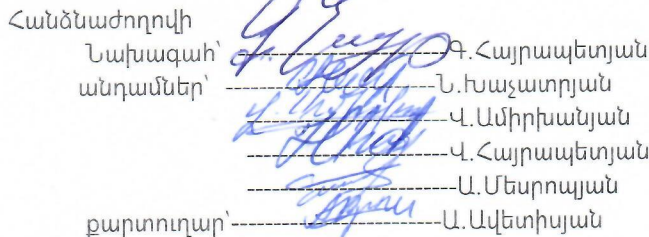 Հանձնաժողովի
Նախագահ՝ --------------------Գ.Հայրապետյան
անդամներ՝ --------------------Ն.Խաչատրյան
--------------------Վ.Ամիրխանյան
--------------------Վ.Հայրապետյան
--------------------Ա.Մեսրոպյան
քարտուղար՝--------------------Ա.Ավետիսյան